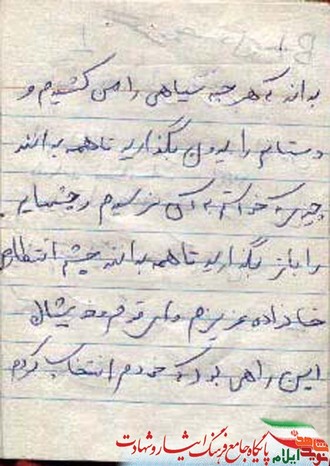 بدانند که هر چه سیاهی را می کشیدم و
دستانم را بیرون بگذارید تا همه بدانند
چیزی که خواستم به آن نرسیدم و چشمانم
را باز بگذارید تا همه بدانند چشم انتظارم
خانواده عزیزم و ای قوم و خویشان
این راهی بود که خودم انتخاب کردم
پایگاه جامع فرهنگ ایثار و شهادت
نوید ایلام